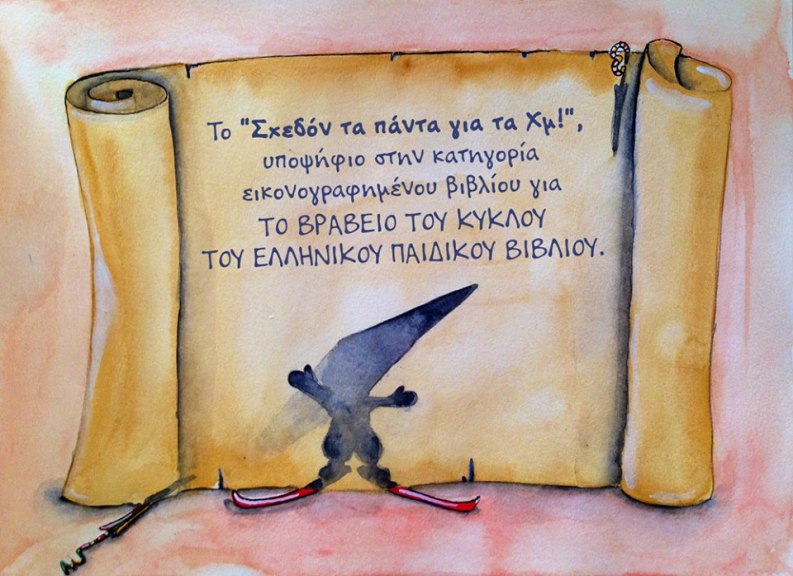 Το "Σχεδόν τα πάντα για τα Χμ!",
υποψήφιο στην κατηγορία
εικονογραφημένου βιβλίου για
ΤΟ ΒΡΑΒΕΙΟ ΤΟΥ ΚΥΚΛΟΥ
ΤΟΥ ΕΛΛΗΝΙΚΟΥ ΠΑΙΔΙΚΟΥ ΒΙΒΛΙΟΥ.